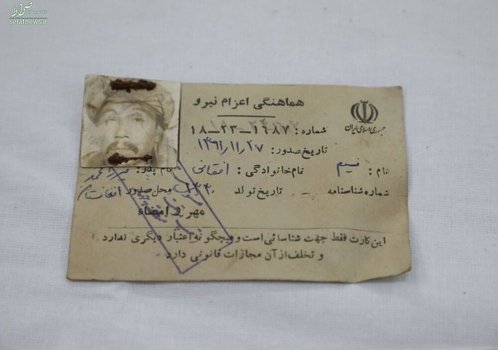 صراط
seratnews.ir
جمهوری اسلامی ایران
هماهنگی اعزام نیرو
شماره: ۱۶۸۷-۲۳-۱۸
تاریخ صدور: ۱۳۶۱/۱۱/۲۷
نام: نسیم نام خانوادگی: افغانی نام پدر:
شماره شناسنامه - تاریخ تولد محل صدور افغانستان
مهر و امضاء
این کارت فقط جهت شناسائی است و هیچگونه اعتبار دیگری ندارد
و تخلف از آن مجازات قانونی دارد